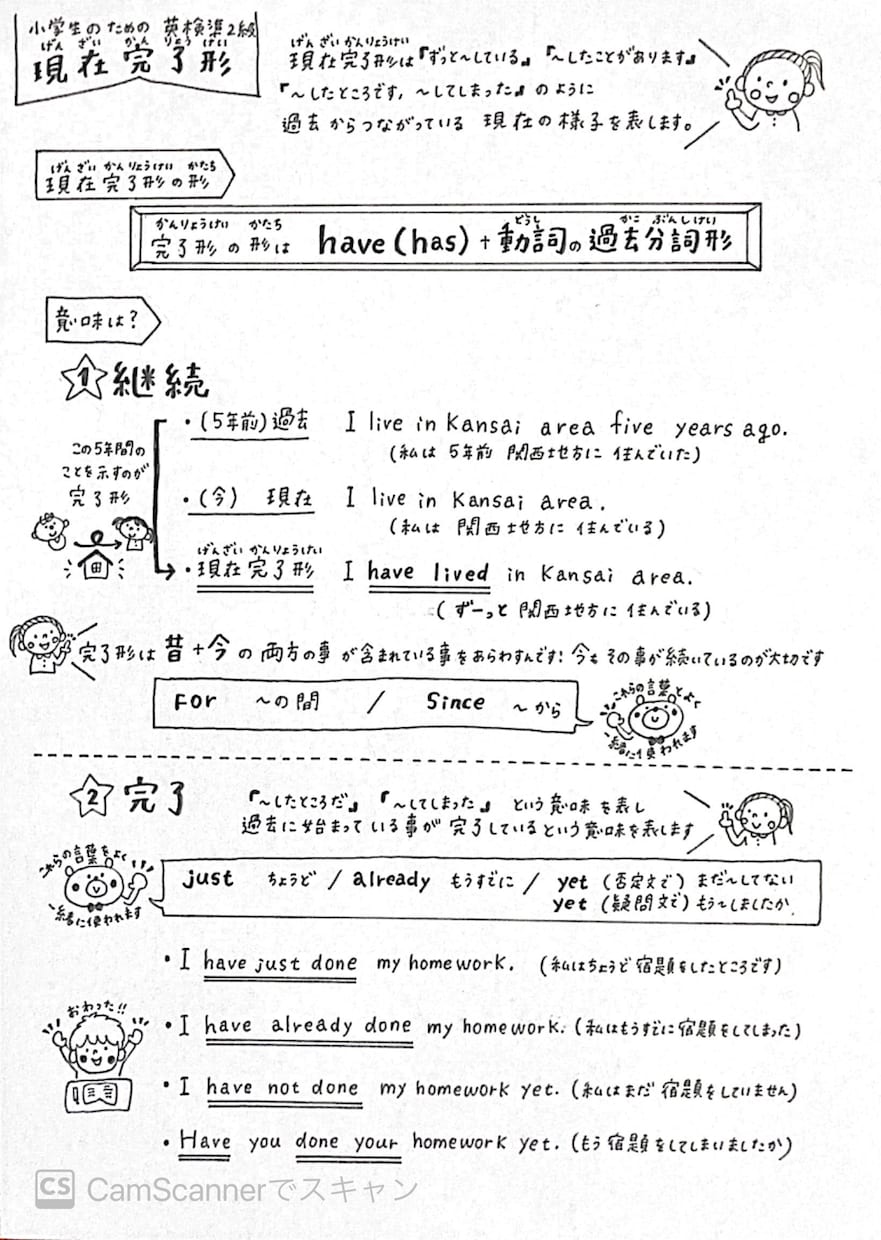 小学生のための 英検準2級
げんざいかんりょうけい
現在完了形
げんざいかんりょうけい
現在完了形は『ずっと〜している』『〜したことがあります』
『〜したところです，〜してしまった』のように
過去からつながっている 現在の様子を表します。
げんざい かんりょうけい かたち
現在完了形の形
かんりょうけい かたち どうし かこ ぶんしけい
完了形の形は have(has)+動詞の過去分詞形
意味は？
1 継続
・(5年前)過去 I live in Kansai area five years ago.
(私は 5年前 関西地方に 住んでいた)
この5年間の
ことを示すのが
完了形
・(今) 現在 I live in Kansai area.
(私は 関西地方に 住んでいる)
げんざい かんりょうけい
・現在完了形 I have lived in Kansai area.
(ずーっと 関西地方に 住んでいる)
完了形は 昔+今の 両方の事が含まれている事をあらわすんです！今もその事が続いているのが大切です
For 〜の間 / Since 〜から
これらの言葉とよく
一緒に使われます
2 完了
『〜したところだ』『〜してしまった』という意味を表し
過去に始まっている事が 完了しているという意味を表します
これらの言葉をよく
一緒に使われます
just ちょうど / already もうすでに / yet (否定文で) まだ〜してない
yet (疑問文で) もう〜しましたか
・I have just done my homework. (私はちょうど宿題をしたところです)
おわった!!
・I have already done my homework. (私はもうすでに宿題をしてしまった)
・I have not done my homework yet. (私はまだ宿題をしていません)
・Have you done your homework yet. (もう宿題をしてしまいましたか)
CS CamScannerでスキャン